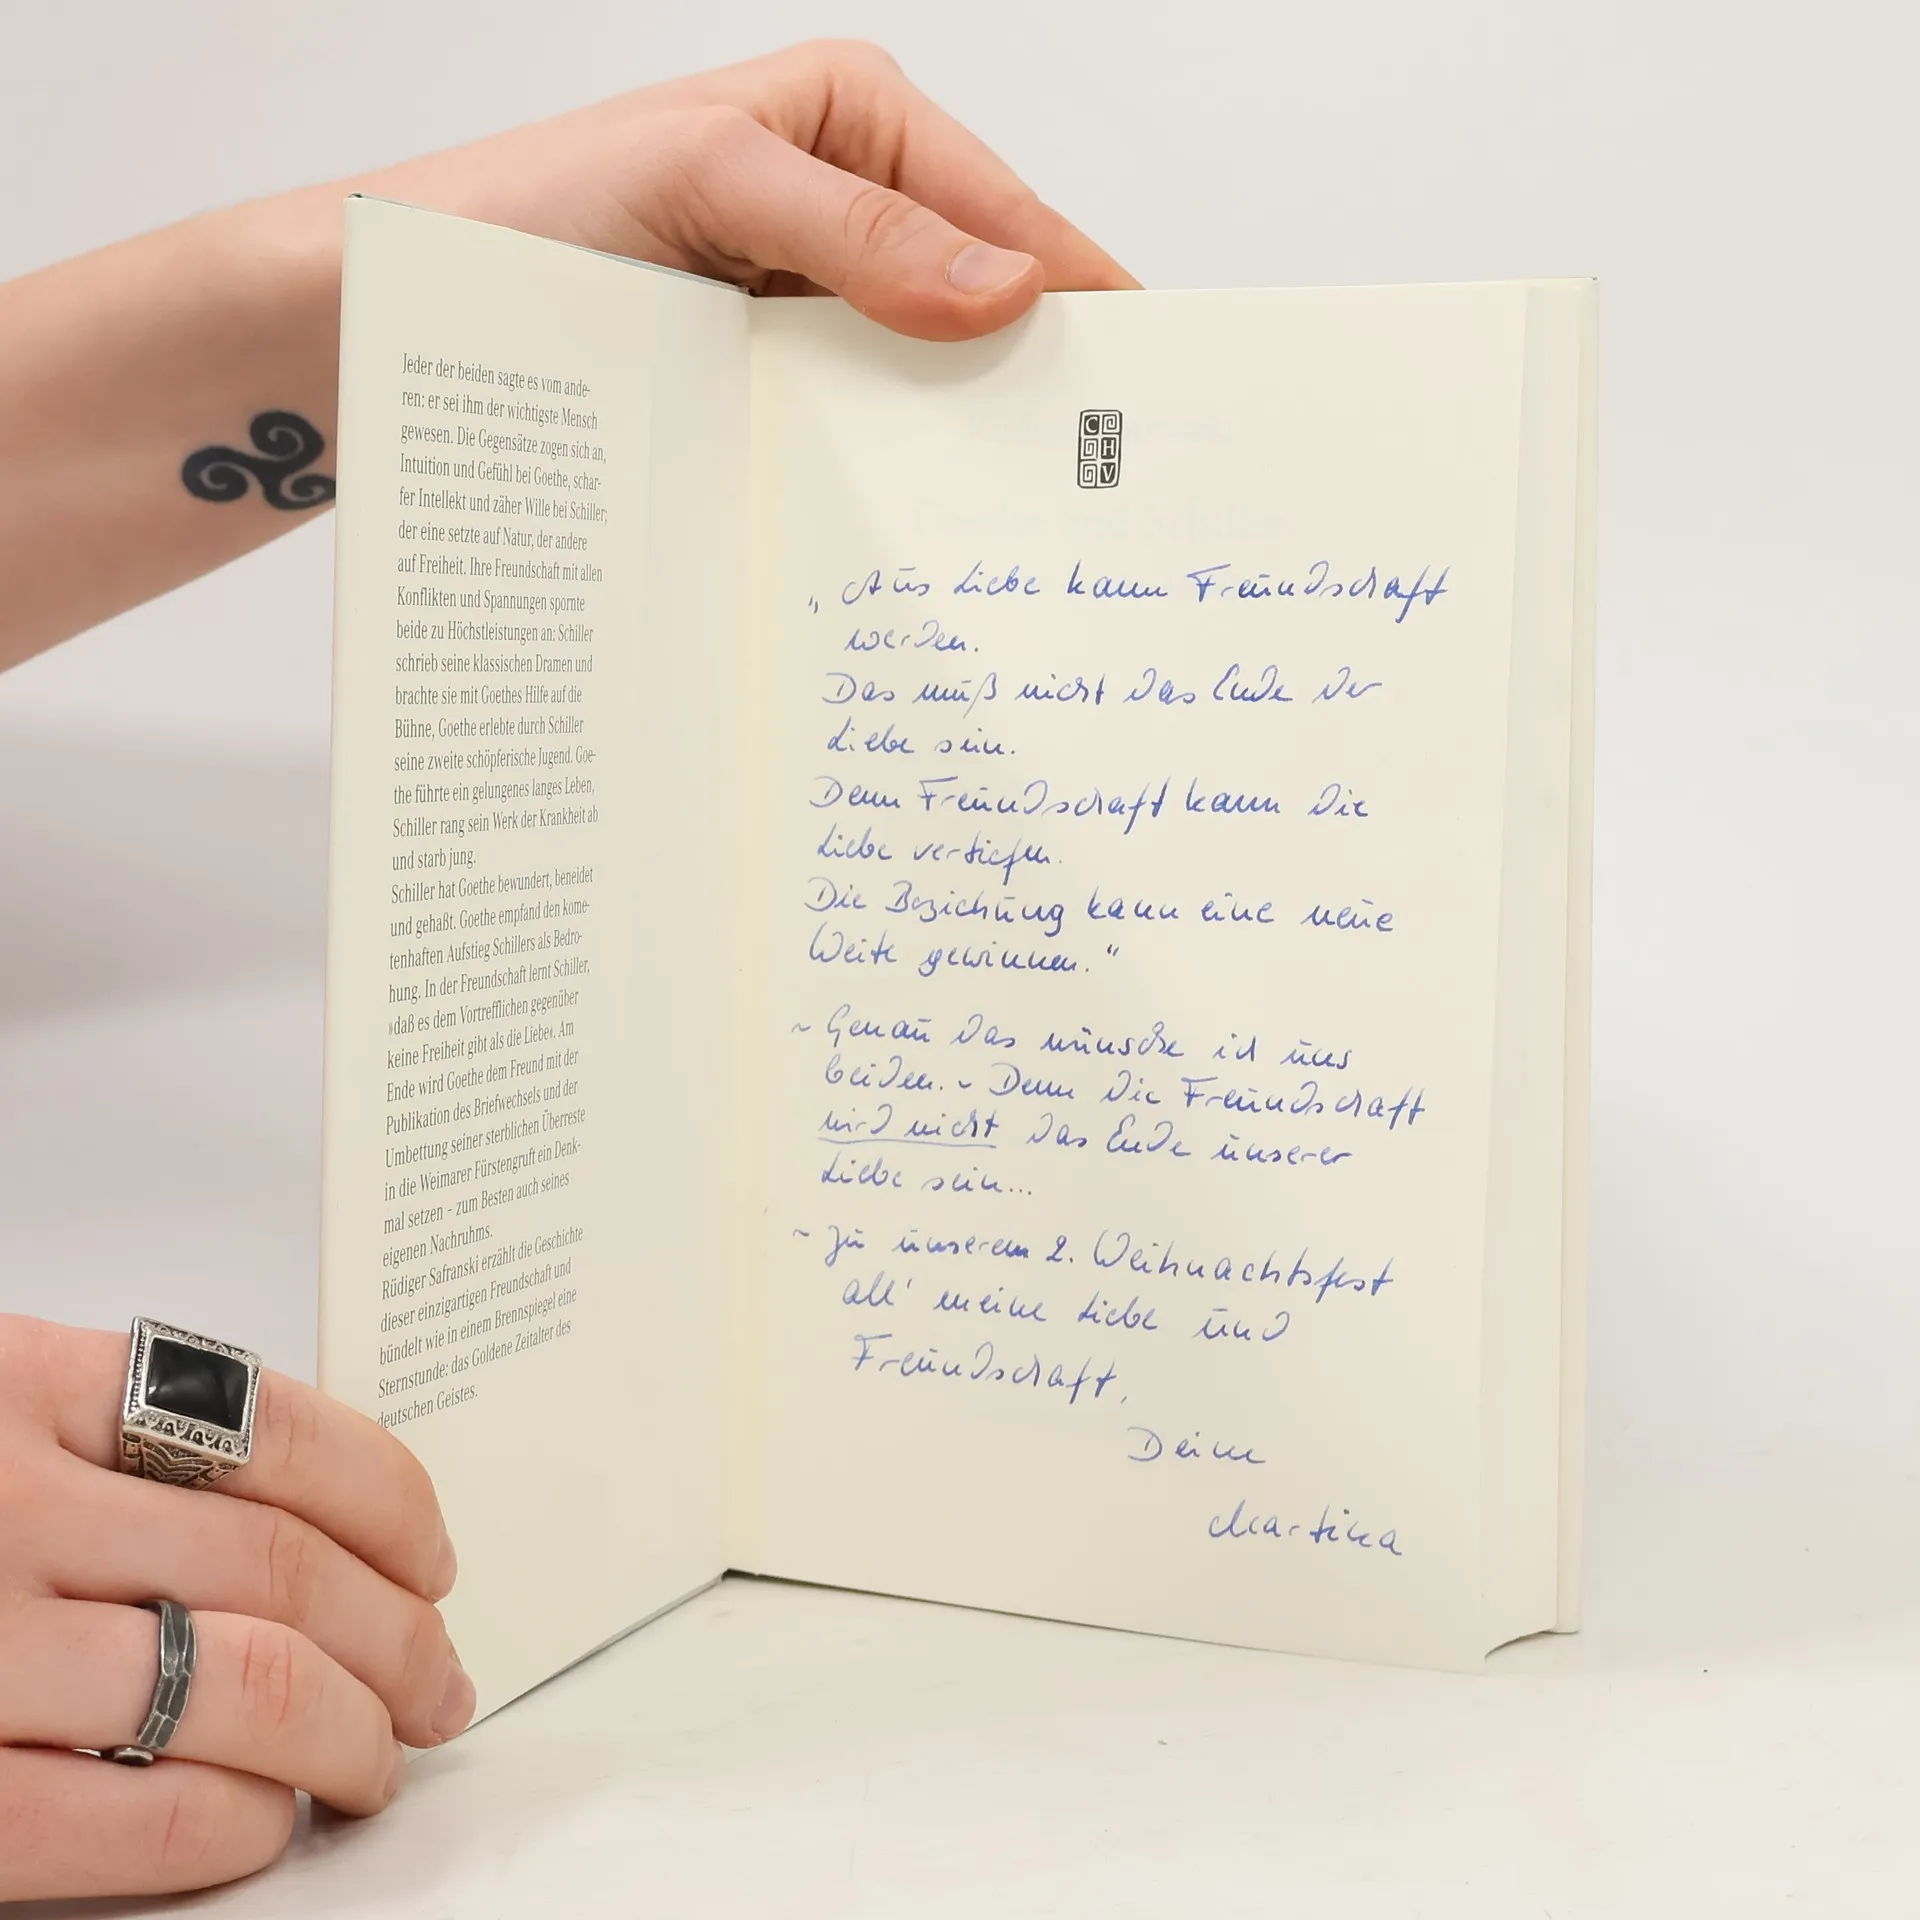 Jeder der beiden sagte es vom ande-
ren: er sei ihm der wichtigste Mensch
gewesen. Die Gegensätze zogen sich an,
Intuition und Gefühl bei Goethe, schar-
fer Intellekt und zäher Wille bei Schiller;
der eine setzte auf Natur, der andere
auf Freiheit. Ihre Freundschaft mit allen
Konflikten und Spannungen spornte
beide zu Höchstleistungen an: Schiller
schrieb seine klassischen Dramen und
brachte sie mit Goethes Hilfe auf die
Bühne, Goethe erlebte durch Schiller
seine zweite schöpferische Jugend. Goe-
the führte ein gelungenes langes Leben,
Schiller rang sein Werk der Krankheit ab
und starb jung.
Schiller hat Goethe bewundert, beneidet
und gehaßt. Goethe empfand den kome-
tenhaften Aufstieg Schillers als Bedro-
hung. In der Freundschaft lernt Schiller,
»daß es dem Vortrefflichen gegenüber
keine Freiheit gibt als die Liebe«. Am
Ende wird Goethe dem Freund mit der
Publikation des Briefwechsels und der
Umbettung seiner sterblichen Überreste
in die Weimarer Fürstengruft ein Denk-
mal setzen – zum Besten auch seines
eigenen Nachruhms.
Rüdiger Safranski erzählt die Geschichte
dieser einzigartigen Freundschaft und
bündelt wie in einem Brennspiegel eine
Sternstunde: das Goldene Zeitalter des
deutschen Geistes.
C
H
V
„Aus Liebe kann Freundschaft
werden.
Das muß nicht das Ende der
Liebe sein.
Denn Freundschaft kann die
Liebe vertiefen.
Die Beziehung kann eine neue
Weite gewinnen."
~ Genau das wünsche ich uns
beiden. ~ Denn die Freundschaft
wird nicht das Ende unserer
Liebe sein...
~ Zu unserem 2. Weihnachtsfest
all' meine Liebe und
Freundschaft,
Deine
Martina